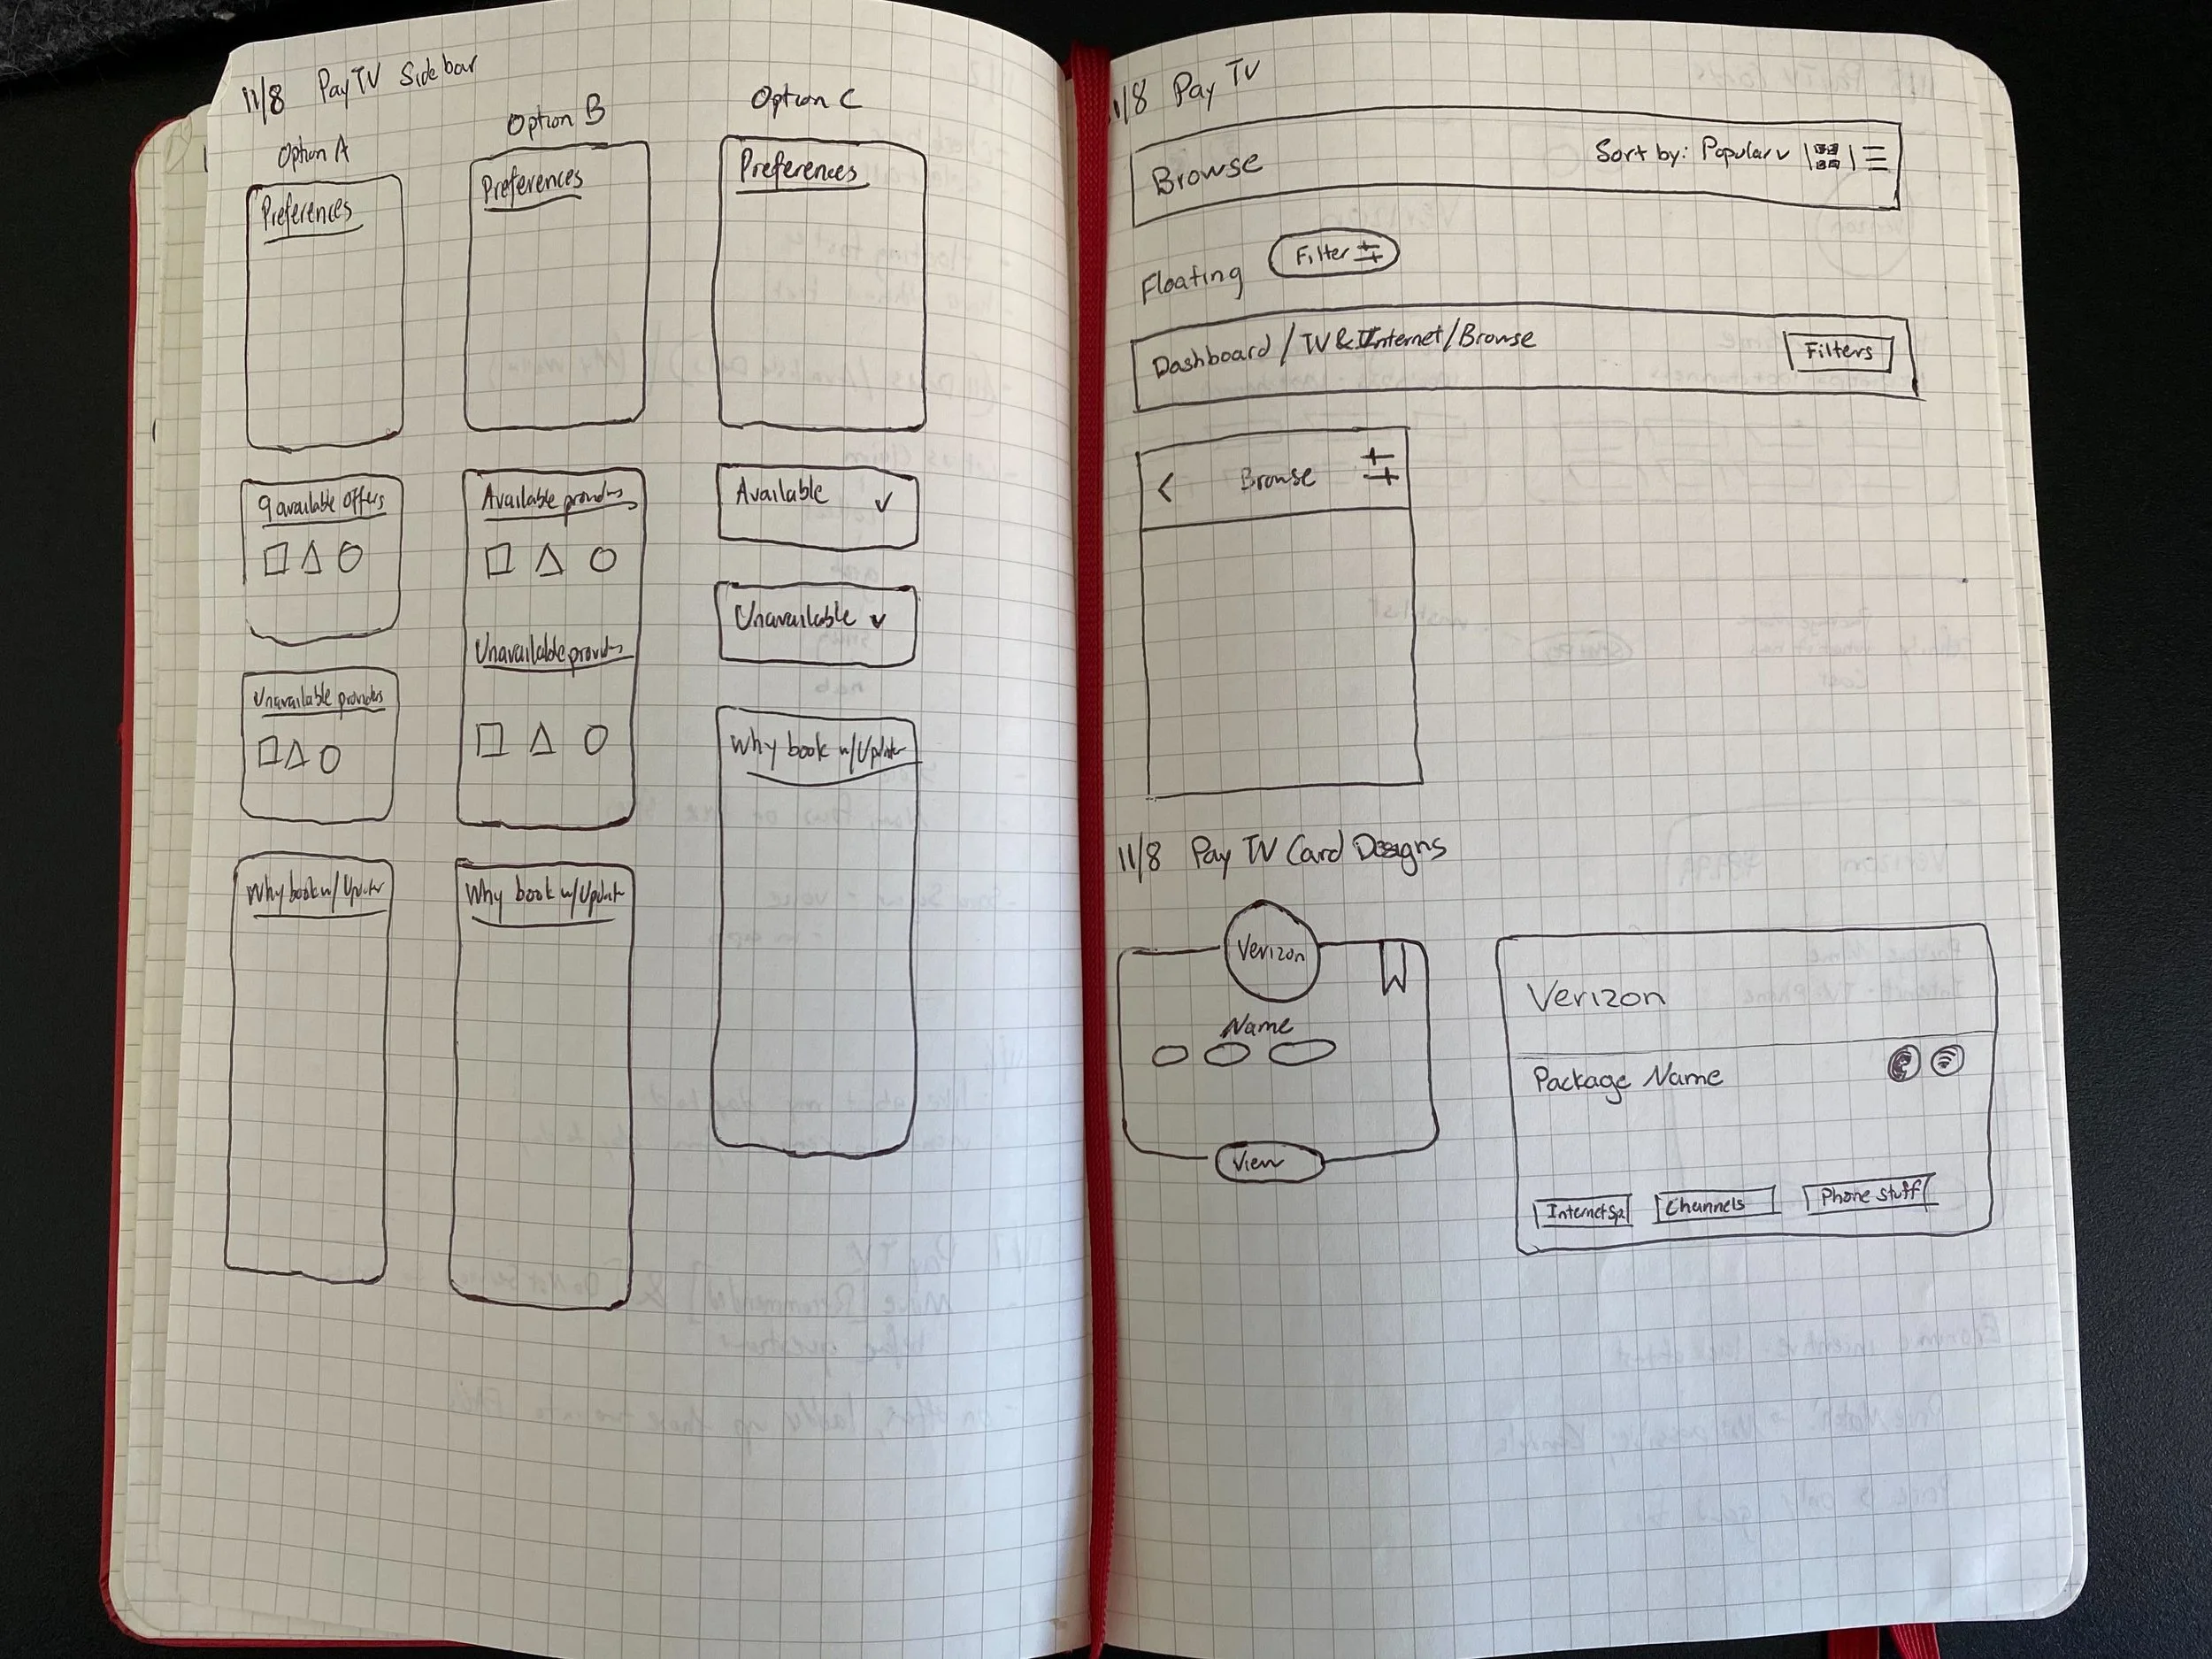 11/8 Pay TV Sidebar
Option A
Preferences
9 available offers
Unavailable providers
Why book w/ Updater
Option B
Preferences
Available providers
Unavailable providers
Why book w/ Updater
Option C
Preferences
Available
Unavailable
Why book w/ Updater
11/8 Pay TV
Browse Sort by: Popular
Floating Filter
Dashboard / TV & Internet / Browse Filters
< Browse
11/8 Pay TV Card Designs
Verizon
Name
View
Verizon
Package Name
Internet Sp. Channels Phone stuff